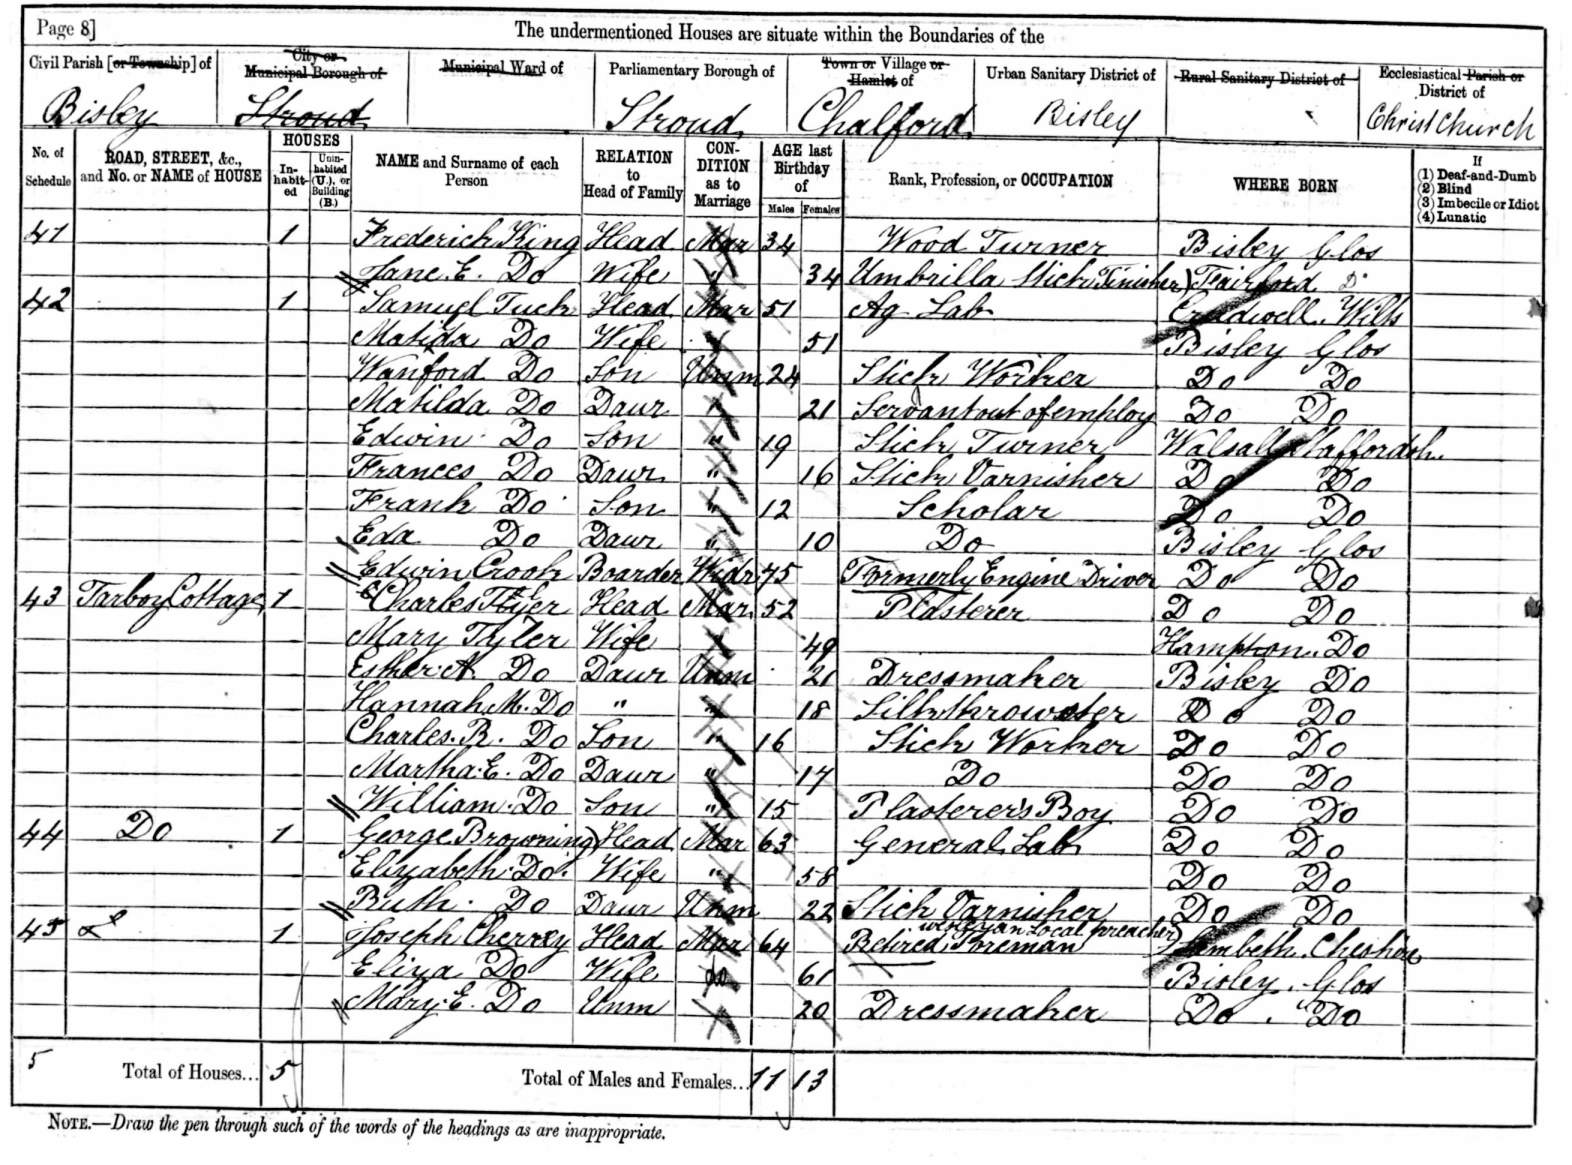 Page 8]
The undermentioned Houses are situate within the Boundaries of the
Civil Parish [or Township] of
City or Municipal Borough of
Municipal Ward of
Parliamentary Borough of
Town or Village or Hamlet of
Urban Sanitary District of
Rural Sanitary District of
Ecclesiastical Parish or District of
Bisley Stroud Stroud Chalford Bisley Christchurch
No. of Schedule
ROAD, STREET, &c., and No. or NAME of HOUSE
HOUSES
In-habit-ed
Unin-habited (U.), or Building (B.)
NAME and Surname of each Person
RELATION to Head of Family
CON-DITION as to Marriage
AGE last Birthday of
Males Females
Rank, Profession, or OCCUPATION
WHERE BORN
If
(1) Deaf-and-Dumb
(2) Blind
(3) Imbecile or Idiot
(4) Lunatic
41 1 Frederick King Head Mar 34 Wood Turner Bisley Glos
Jane. E. Do Wife " 34 Umbrilla Stick Finisher Fairford Do
42 1 Samuel Tuck Head Mar 51 Ag Lab Crudwell. Wilts
Matilda Do Wife " 51 Bisley Glos
Wanford Do Son Unm 24 Stick Worker Do Do
Matilda Do Daur " 21 Servant out of employ Do Do
Edwin Do Son " 19 Stick Turner Walsall Staffordsh.
Frances Do Daur " 16 Stick Varnisher Do Do
Frank Do Son " 12 Scholar Do Do
Eda Do Daur " 10 Do Bisley Glos
Edwin Crook Boarder Widr 75 Formerly Engine Driver Do Do
43 Tarboy Cottage 1 Charles Head Mar 52 Plasterer Do Do
Mary Tyler Wife " 49 Hampton. Do
Esther A. Do Daur Unm 21 Dressmaker Bisley Do
Hannah M. Do " " 18 Silk throwster Do Do
Charles. R. Do Son " 16 Stick Worker Do Do
Martha. E. Do Daur " 17 Do Do Do
William. Do Son " 15 Plasterer's Boy Do Do
44 Do 1 George Browning Head Mar 63 General Lab Do Do
Elizabeth. Do. Wife " 58 Do Do
Ruth. Do Daur Unm 22 Stick Varnisher Do Do
wesleyan Local preacher
45 1 Joseph Cherrey Head Mar 64 Retired Foreman Lambeth. Cheshire
Eliza Do Wife Do 61 Bisley. Glos
Mary. E. Do Unm 20 Dressmaker Do. Do
5 Total of Houses... 5 Total of Males and Females... 11 13
NOTE.—Draw the pen through such of the words of the headings as are inappropriate.